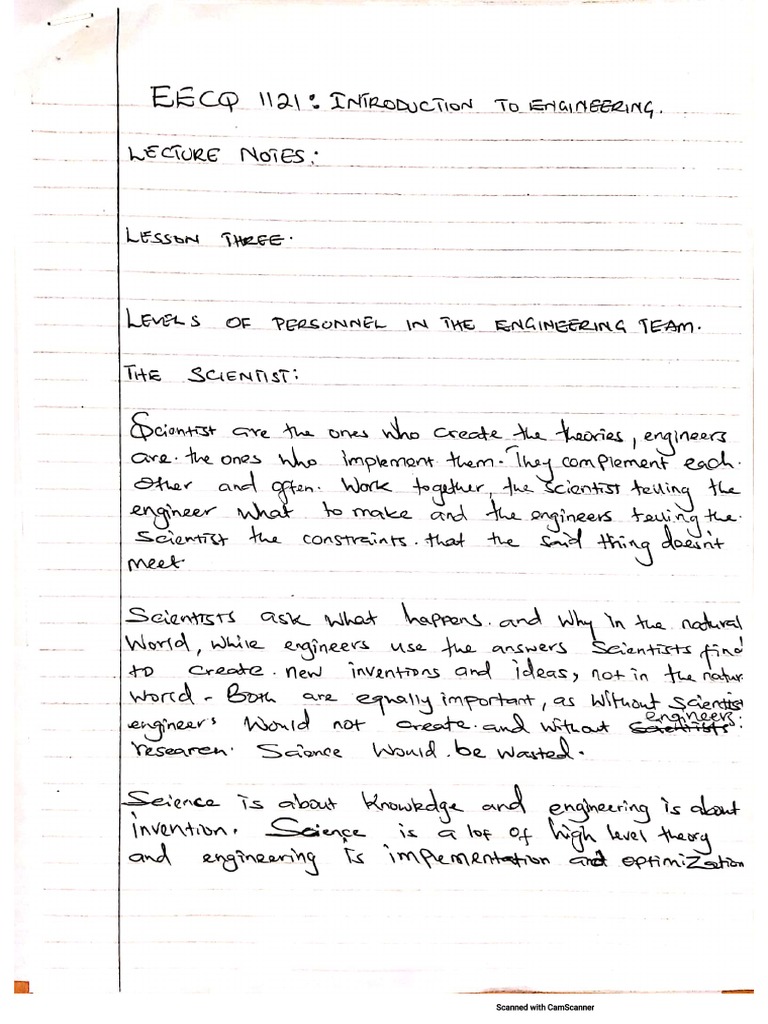 EECQ 1121: INTRODUCTION TO ENGINEERING.
LECTURE NOTES:
LESSON THREE.
LEVELS OF PERSONNEL IN THE ENGINEERING TEAM.
THE SCIENTIST:
Scientist are the ones who create the theories, engineers
are. the ones who implement them. They complement each.
Other and often. Work together, the scientist telling the
engineer what to make and the engineers telling the.
Scientist the constraints. that the said thing doesn't
meet.
Scientists ask what happens. and why in the natural
World, while engineers use the answers Scientists find
to create. new inventions and ideas, not in the natur
world - Both are equally important, as without scientist
engineers.
engineers would not create. and without scientists:
research. Science would. be wasted.
Science is about knowledge and engineering is about
invention. Science is a lot of high level theory
and engineering is impementation and optimization
Scanned with CamScanner